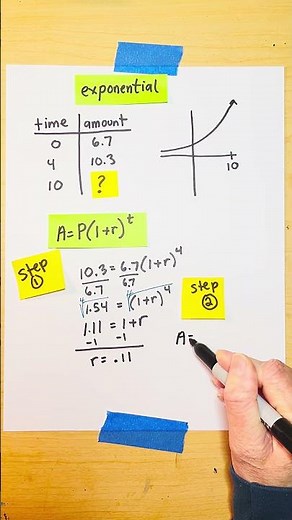 exponential
time amount
0 6.7
4 10.3
10 ?
10
A=P(1+r)^t
step ①
10.3 = 6.7(1+r)^4
6.7 6.7
⁴√1.54 = ⁴√(1+r)^4
1.11 = 1+r
-1 -1
r= .11
step ②
A=